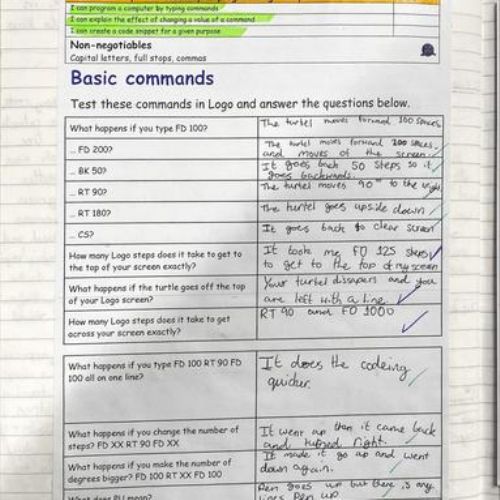 I can program a computer by typing commands
I can explain the effect of changing a value of a command
I can create a code snippet for a given purpose
Non-negotiables
Capital letters, full stops, commas
Basic commands
Test these commands in Logo and answer the questions below.
What happens if you type FD 100?
The turtel moves forward 100 spaces
... FD 200?
The turtel moves forward 200 spaces,
and moves of the screen.
... BK 50?
It goes back 50 steps so it
goes backwards.
... RT 90?
The turtel moves 90° to the right
... RT 180?
The turtel goes upside down
... CS?
It goes back to clear screen
How many Logo steps does it take to get to
the top of your screen exactly?
It took me FD 325 steps
to get to the top of my screen
What happens if the turtle goes off the top
of your Logo screen?
Your turtel dissapers and you
are left with a line.
How many Logo steps does it take to get
across your screen exactly?
RT 90 and FD 1000
What happens if you type FD 100 RT 90 FD
100 all on one line?
It does the codeing
quicker.
What happens if you change the number of
steps? FD XX RT 90 FD XX
It went up then it came back
and turned right.
What happens if you make the number of
degrees bigger? FD 100 RT XX FD 100
It made it go up and went
down again.
What does PU mean?
Pen goes up but there is any
lines Pen up